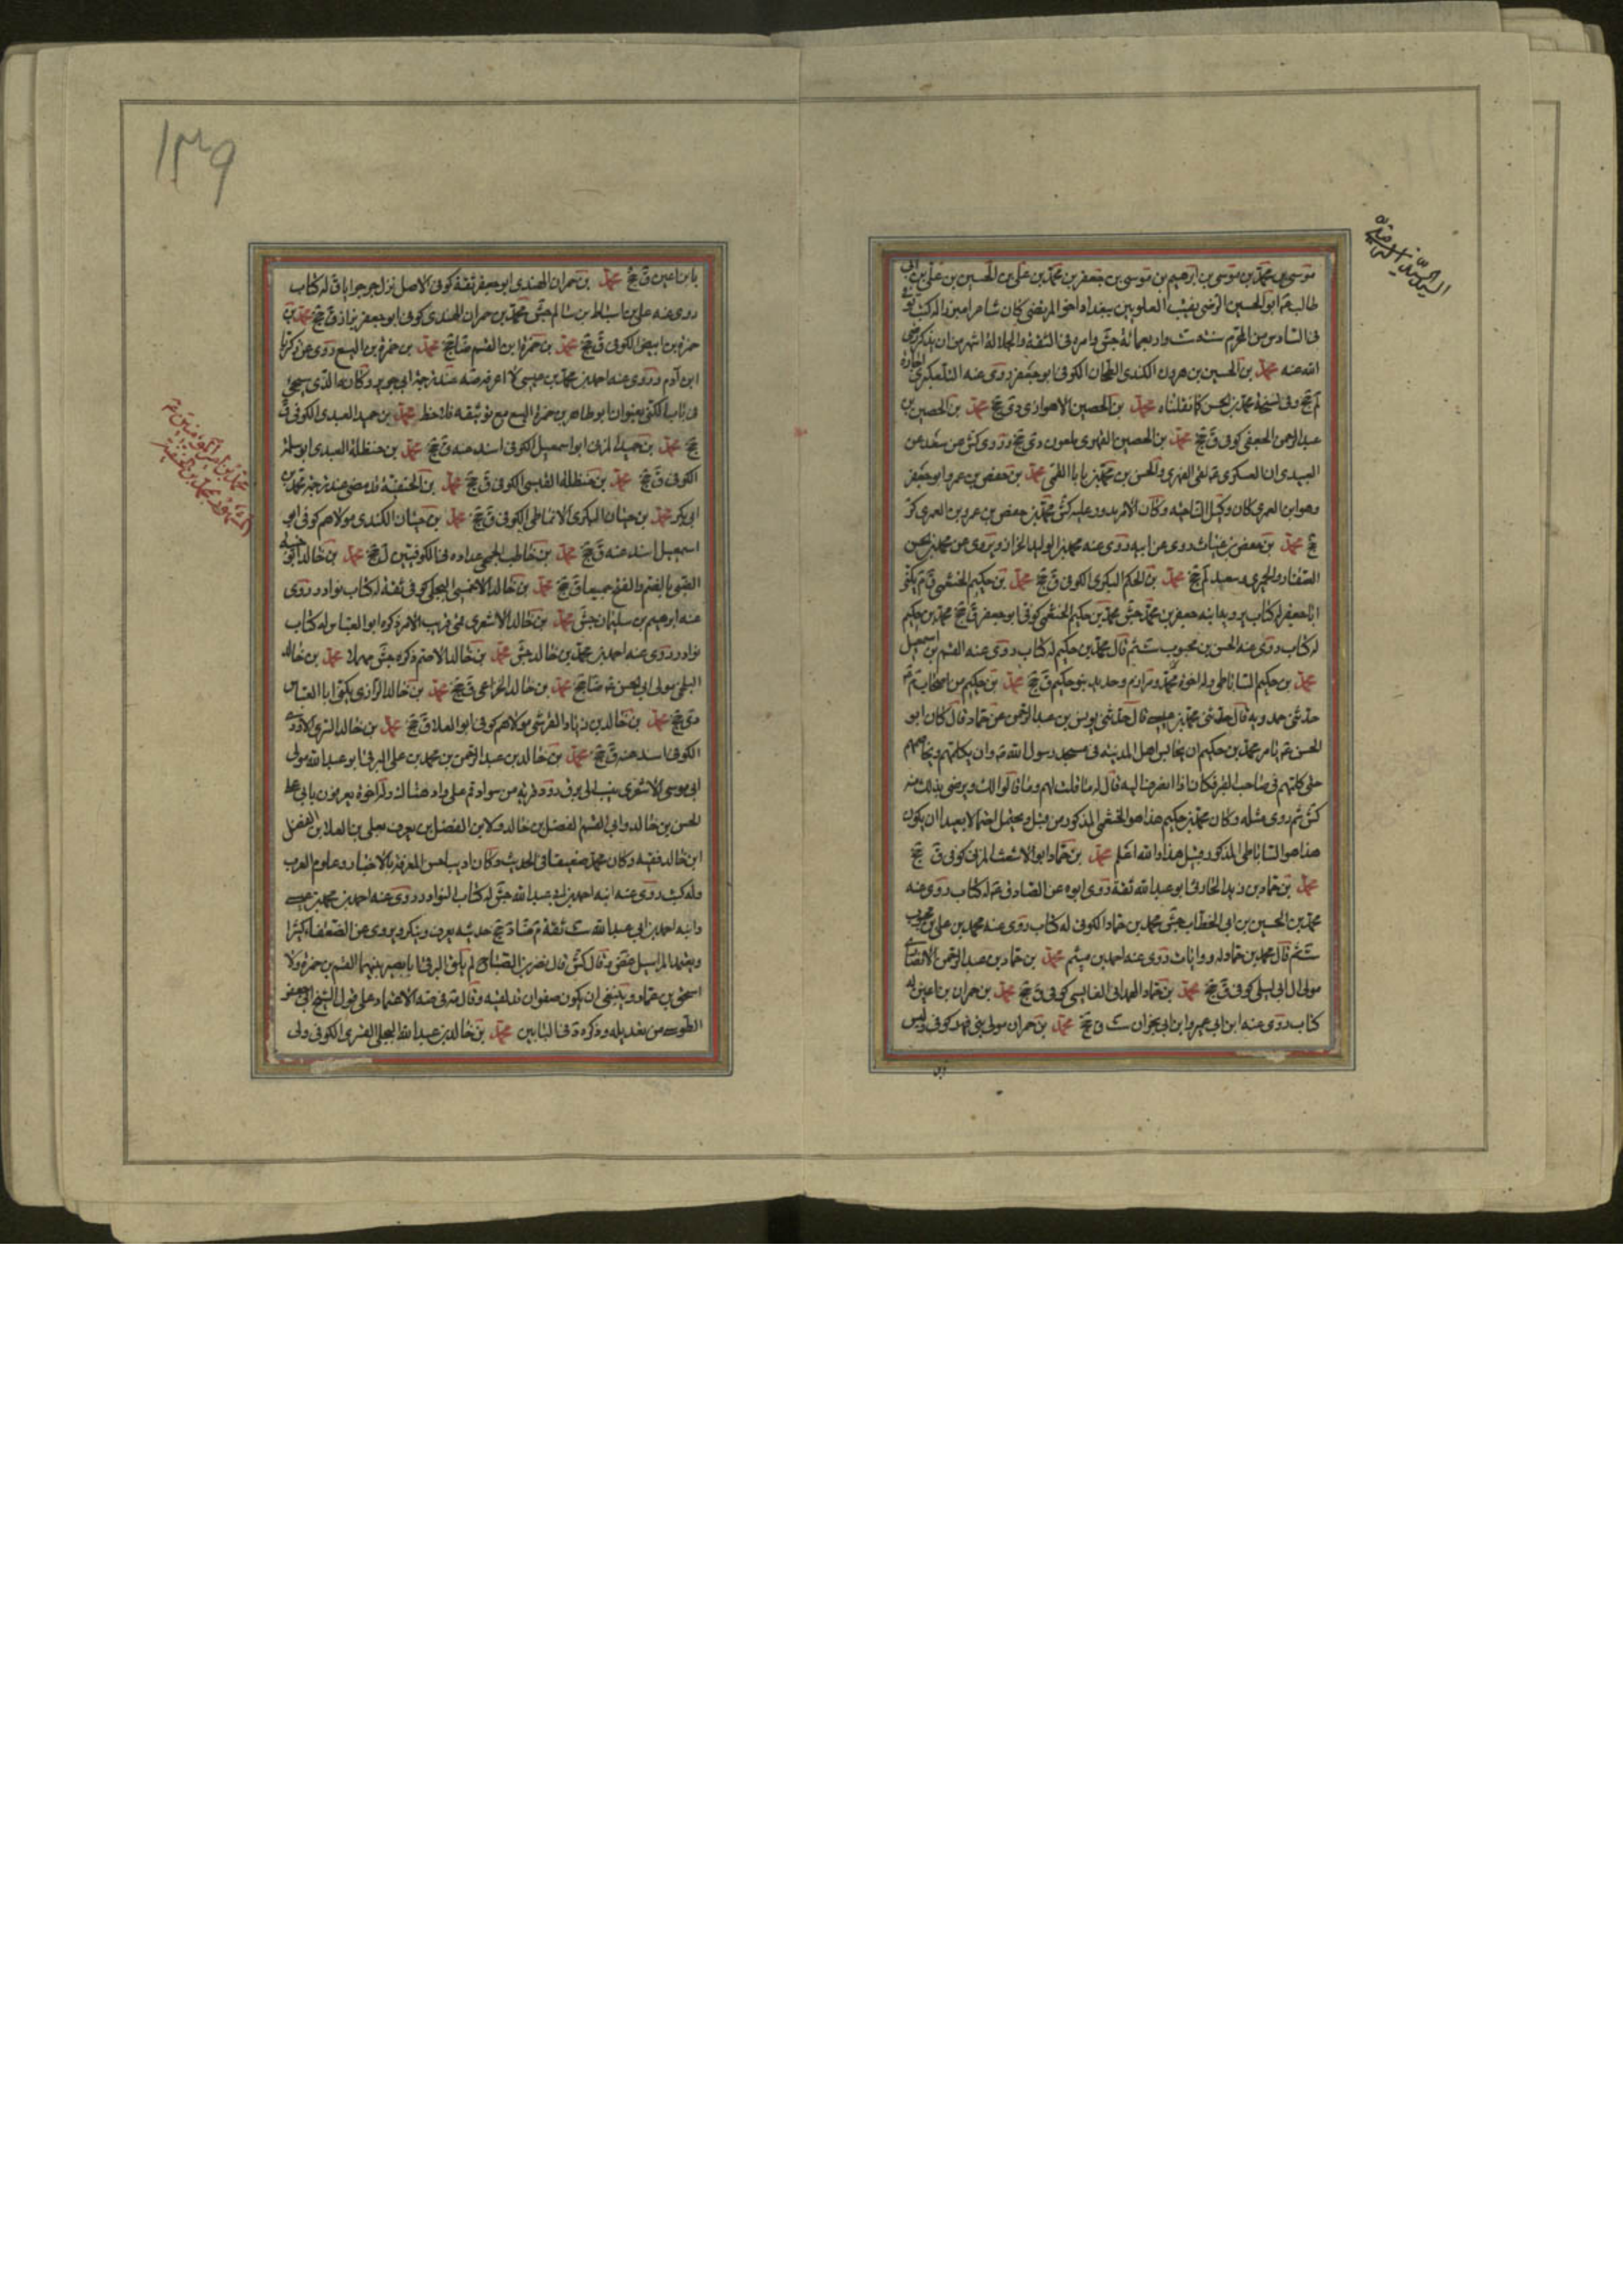 السيد الرضي
موسى بن محمد بن موسى بن ابرهيم بن موسى بن جعفر بن محمد بن على بن الحسين بن على بن ابى
طالب ابو الحسين الرضى نقيب العلويين ببغداد اخو المرتضى كان شاعرا مبرزا له كتب توفى
فى السادس من المحرم سنة ست واربعمائة جش وامره فى الثقة والجلالة اشهر من ان يذكر رضى
الله عنه محمد بن الحسين بن هرون الكندى الطحان الكوفى ابو جعفر روى عنه التلعكبرى
لم جخ وفى نسخة محمد بن الحسن كما نقلناه محمد بن الحصين الاهوازى دى جخ محمد بن الحصين بن
عبد الرحمن الجعفى كوفى ق جخ محمد بن الحصين الفهرى ملعون دى جخ وروى كش عن سعد عن
العبيدى ان العسكرى لعن الفهرى والحسن بن محمد بن بابا القمى محمد بن حفص بن عمرو ابو جعفر
وهو ابن العمرى كان وكيل الناحيه وكان الامر يدور عليه كش محمد بن حفص بن عمرو بن العمرى كر
جخ محمد بن حفص بن غياث روى عن ابيه روى عنه محمد بن الوليد الخزاز وروى عن محمد بن الحسن
الصفار والحميرى وسعد لم جخ محمد بن الحكم البكرى الكوفى ق جخ محمد بن حكيم الخثعمى ق م يكنى
ابا جعفر له كتاب يرويه ابنه جعفر بن محمد جش محمد بن حكيم الخثعمى كوفى ابو جعفر ق جخ محمد بن حكيم
له كتاب روى عنه الحسن بن محبوب ست ثم قال محمد بن حكيم له كتاب روى عنه القسم بن اسمعيل
محمد بن حكيم الساباطى وله اخوة محمد ومرازم وحديد بنو حكيم ق جخ محمد بن حكيم من اصحاب م
حدثنى حمدويه قال حدثنى محمد بن عيسى قال حدثنى يونس بن عبد الرحمن عن حماد قال كان ابو
الحسن يامر محمد بن حكيم ان يجالس اهل المدينه فى مسجد رسول الله وان يكلمهم ويخاصمهم
حتى كلمهم فى صاحب القبر فكان اذا انصرف اليه قال له ما قلت لهم وما قالوا لك ويرضى بذلك منه
كش ثم روى مثله وكان محمد بن حكيم هذا هو الخثعمى المذكور من قبل ويحتمل احتمالا بعيدا ان يكون
هذا هو الساباطى المذكور قبل هذا والله اعلم محمد بن حماد ابو الاشعث المزنى كوفى ق جخ
محمد بن حماد بن زيد الحارثى ابو عبد الله ثقة روى ابوه عن الصادق له كتاب روى عنه
محمد بن الحسين بن ابى الخطاب جش محمد بن حماد الكوفى له كتاب روى عنه محمد بن على بن محبوب
ست ثم قال محمد بن حماد له روايات روى عنه احمد بن ميثم محمد بن حماد بن عبد الرحمن الانصارى
مولى ال ابى ليلى كوفى ق جخ محمد بن حماد الهمدانى الفايشى كوفى ق جخ محمد بن حمران بن اعين له
كتاب روى عنه ابن ابى عمير وابن ابى نجران ست ق جخ محمد بن حمران مولى بنى فهر كوفى وليس
١٣٩
محمد بن امير المؤمنين
المشهور بمحمد بن الحنفية
بابن اعين ق جخ محمد بن حمران النهدى ابو جعفر ثقة كوفى الاصل نزل جرجرايا ق له كتاب
روى عنه على بن اسباط بن سالم جش محمد بن حمران النهدى كوفى ابو جعفر بزاز ق جخ محمد بن
حمزة بن ابيض الكوفى ق جخ محمد بن حمزة بن القسم ضا جخ محمد بن حمزة بن اليسع روى عن زكريا
ابن ادم وروى عنه احمد بن محمد بن عيسى لا اعرفه
فى باب الكنى بعنوان ابو طاهر بن حمزة اليسع مع توثيقه فلاحظ محمد بن حميد العبدى الكوفى ق
جخ محمد بن حميد المزنى ابو اسمعيل الكوفى اسند عنه ق جخ محمد بن حنظلة العبدى ابو سلمة
الكوفى ق جخ محمد بن حنظلة القيسى الكوفى ق جخ محمد بن الحنفية قد مضى عند ترجمة محمد بن
ابى بكر محمد بن حيان البكرى الانماطى الكوفى ق جخ محمد بن حيان الكندى مولاهم كوفى ابو
اسمعيل اسند عنه ق جخ محمد بن خاطب الجمحى عداده فى الكوفيين ل جخ محمد بن خالد ابو خنيس
الضبى بالضم والفتح جميعا ق جخ محمد بن خالد الاحمسى البجلى كوفى ثقة له كتاب نوادر روى
عنه ابرهيم بن سليمان جش محمد بن خالد الاشعرى قمى قريب الامر ذكره ابو العباس له كتاب
نوادر روى عنه احمد بن محمد بن خالد جش محمد بن خالد الاصم ذكره جش محمد بن خالد
البلخى مولى ابى الحسن ضا جخ محمد بن خالد الخزاعى ق جخ محمد بن خالد الرازى يكنى ابا العباس
دى جخ محمد بن خالد بن زياد القرشى مولاهم كوفى ابو العلا ق جخ محمد بن خالد السرى الاودى
الكوفى اسند عنه ق جخ محمد بن خالد بن عبد الرحمن بن محمد بن على البرقى ابو عبد الله مولى
ابى موسى الاشعرى ينسب الى برق رود قرية من سواد قم على واد هناك وله اخوة يعرفون بابى على
الحسن بن خالد وابى القسم الفضل بن خالد ولابن الفضل ابن يعرف بعلى بن العلا بن الفضل
ابن خالد فقيه وكان محمد ضعيفا فى الحديث وكان اديبا حسن المعرفة بالاخبار وعلوم العرب
وله كتب روى عنه ابنه احمد بن ابى عبد الله جش له كتاب النوادر روى عنه احمد بن محمد بن عيسى
وابنه احمد بن ابى عبد الله ست ثقة م ضا د جخ حديثه يعرف وينكر ويروى عن الضعفا كثيرا
ويعتمد المراسيل غض وقال كش قال نصر بن الصباح لم يلق البرقى ابا بصير بينهما القسم بن حمزة ولا
اسحق بن عمار وينبغى ان يكون صفوان قد لقيه وقال فى صه الاعتماد على قول الشيخ ابى جعفر
الطوسى من تعديله وذكره د فى البابين محمد بن خالد بن عبد الله البجلى القسرى الكوفى ولى